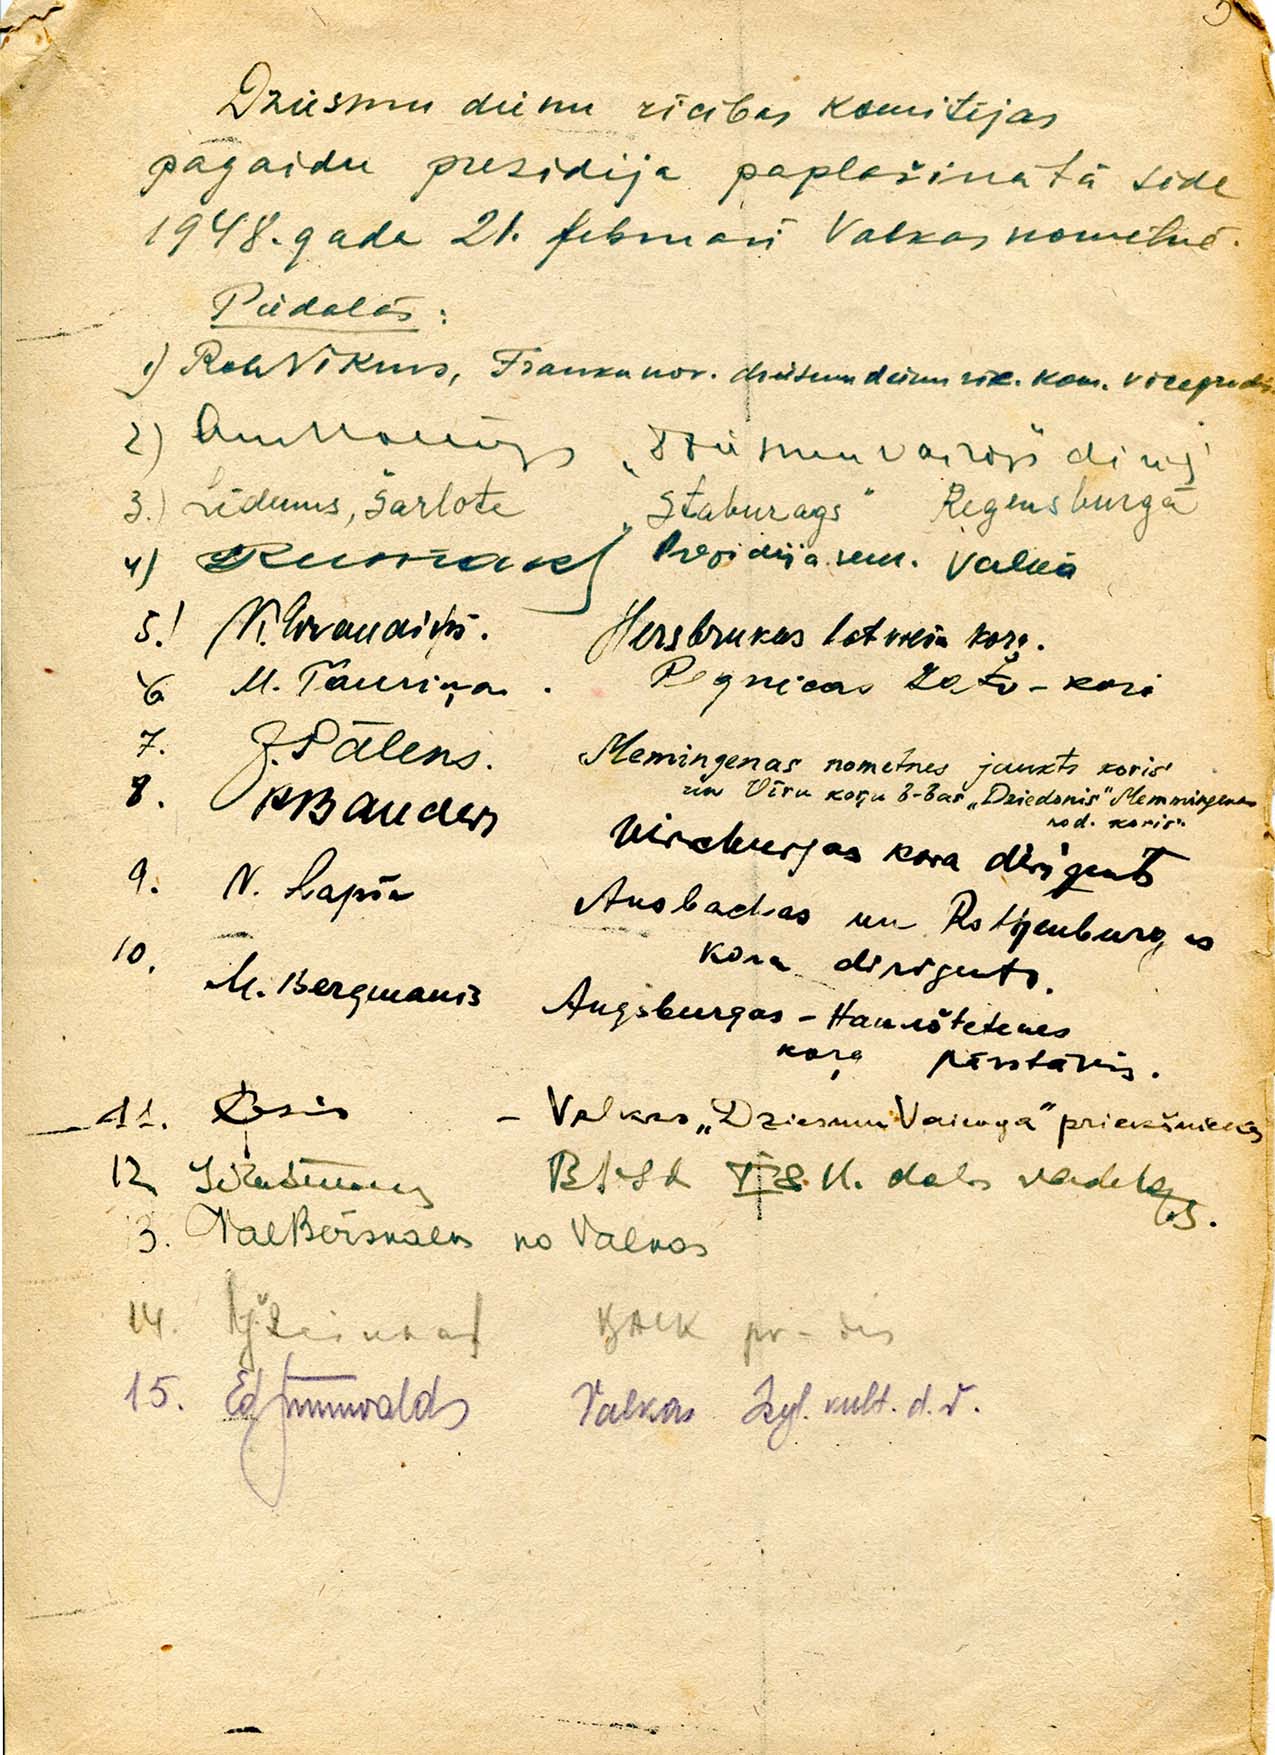 Dziesmu dienu rīcības komitējas
pagaidu prezidija paplašinātā sēde
1948. gada 21. februarī Valkas nometnē.
Piedalās:
1) Rob Vīksns, Franku nov. dziesmu dienu rīc. kom. vicepriekšs.
2) „Dziesmu vairogs" diriģ.
3.) Līdums, Šarlote „Staburags" Regensburgā
4) Prezidija sekr. Valkā
5.) Hersbrukas latviešu koŗi.
6 M. Tauriņa. Pegnicas Latv-kori
7. J. Pālens. Memingenas nometnes jaukts koris
un Vīru koŗu b-bas „Dziedonis" Memmingenas
nod. koris.
8. Bauders Vircburgas kora diriģents
9. N. Lapiņ Ansbachas un Rothenburgas
kora diriģents.
10. M. Bergmanis Augsburgas - Haunštetenes
koŗa pārstāvis.
11. Osis - Valkas „Dziesmu Vairoga" priekšnieks
12 II. dala vadītājs.
3. Val Bērzkalns no Valkas
14. pr-dis
15. Ed Grunwalds Valkas Izgl. kult. d. v.